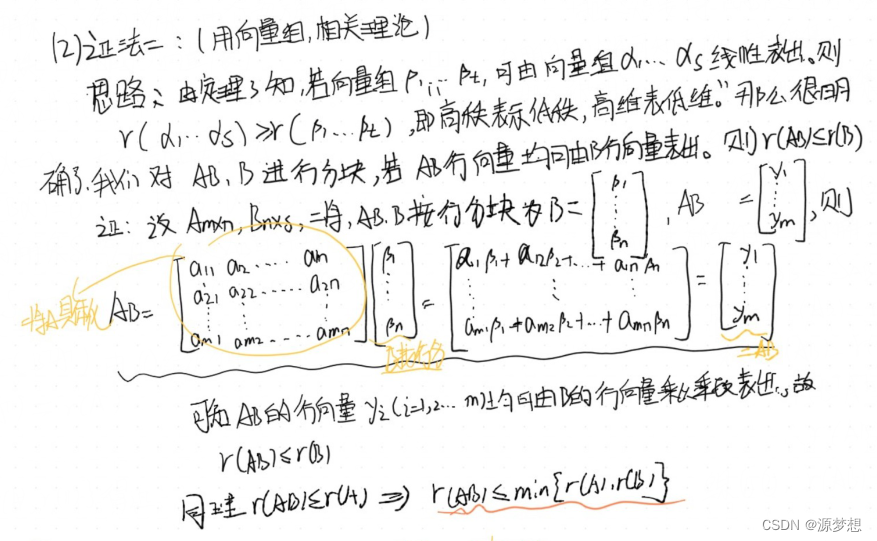 (2)证法二:(用向量组,相关理论)
思路:由定理3知,若向量组β1,…βt,可由向量组α1…αs线性表出。则
r(α1…αs)≥r(β1…βt),即高秩表示低秩,高维表低维。”那么很明
确了.我们对AB,B进行分块,若AB行向量均可由B行向量表出。则r(AB)≤r(B)
证:设Amxn,Bnxs,将,AB.B按行分块为B=[β1 ⋮ βn],AB=[γ1 ⋮ γm],则
将A具体化 AB=[a11 a12 …… a1n a21 a22 …… a2n ⋮ am1 am2 …… amn][β1 ⋮ βn]=[a11β1+a12β2+…+a1nβn ⋮ am1β1+am2β2+…+amnβn]=[γ1 ⋮ γm]
B按行分 =AB
可知AB的行向量γi(i=1,2…m)均可由B的行向量表出,故
r(AB)≤r(B)
同理r(AB)≤r(A)⇒r(AB)≤min{r(A),r(B)}
CSDN @源梦想